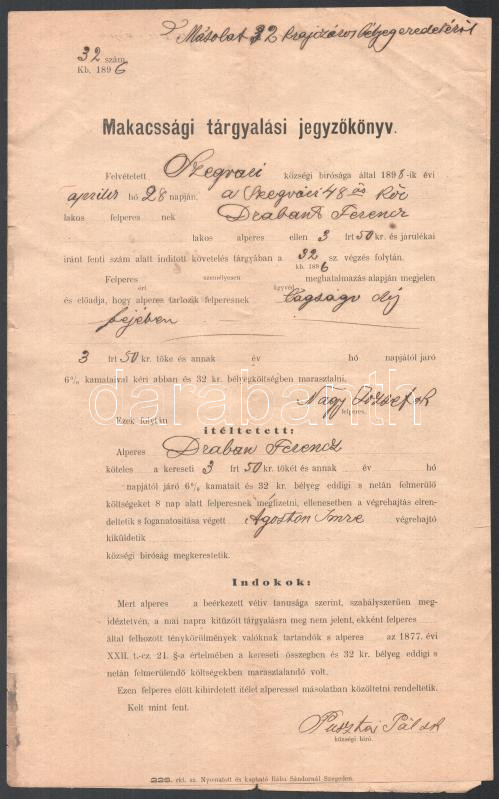 Másolat 32 krajczáros bélyeg eredetéről
32 szám
Kb. 1896
Makacssági tárgyalási jegyzőkönyv.
Felvétetett Szegvári községi birósága által 1898-ik évi
április hó 28 napján. a Szegvári 48 ás Kör
lakos felperes nek Drabant Ferencz
lakos alperes ellen 3 frt 50 kr. és járulékai
iránt fenti szám alatt inditott követelés tárgyában a 32 sz. végzés folytán.
kb. 1896
Felperes személyesen meghatalmazás alapján megjelen
ért ügyvéd
és előadja, hogy alperes tartozik felperesnek tagsági díj
fejében
3 frt 50 kr. tőke és annak év hó napjától járó
6% kamataival kéri abban és 32 kr. bélyegköltségben marasztalni,
Nagy József sk
felperes.
Ezek folytán
itéltetett:
Alperes Draban Ferencz
köteles a kereseti 3 frt 50 kr. tőkét és annak év hó
napjától járó 6% kamatait és 32 kr. bélyeg eddigi s netán felmerülő
költségeket 8 nap alatt felperesnek megfizetni, ellenesetben a végrehajtás elren-
deltetik s foganatositása végett Ágoston Imre végrehajtó
kiküldetik
községi biróság megkerestetik.
Indokok:
Mert alperes a beérkezett vétiv tanusága szerint, szabályszerüen meg-
idéztetvén, a mai napra kitüzött tárgyalásra meg nem jelent, ekként felperes
által felhozott ténykörülmények valóknak tartandók s alperes az 1877. évi
XXII. t.-cz. 21. §-a értelmében a kereseti összegben és 32 kr. bélyeg eddigi s
netán felmerülendő költségekben marasztalandó volt.
Ezen felperes előtt kihirdetett itélet alperessel másolatban közöltetni rendeltetik.
Kelt mint fent.
Pusztai Pál sk
községi biró.
226. rkt. sz. Nyomatott és kapható Bába Sándornál Szegeden.
darabanth